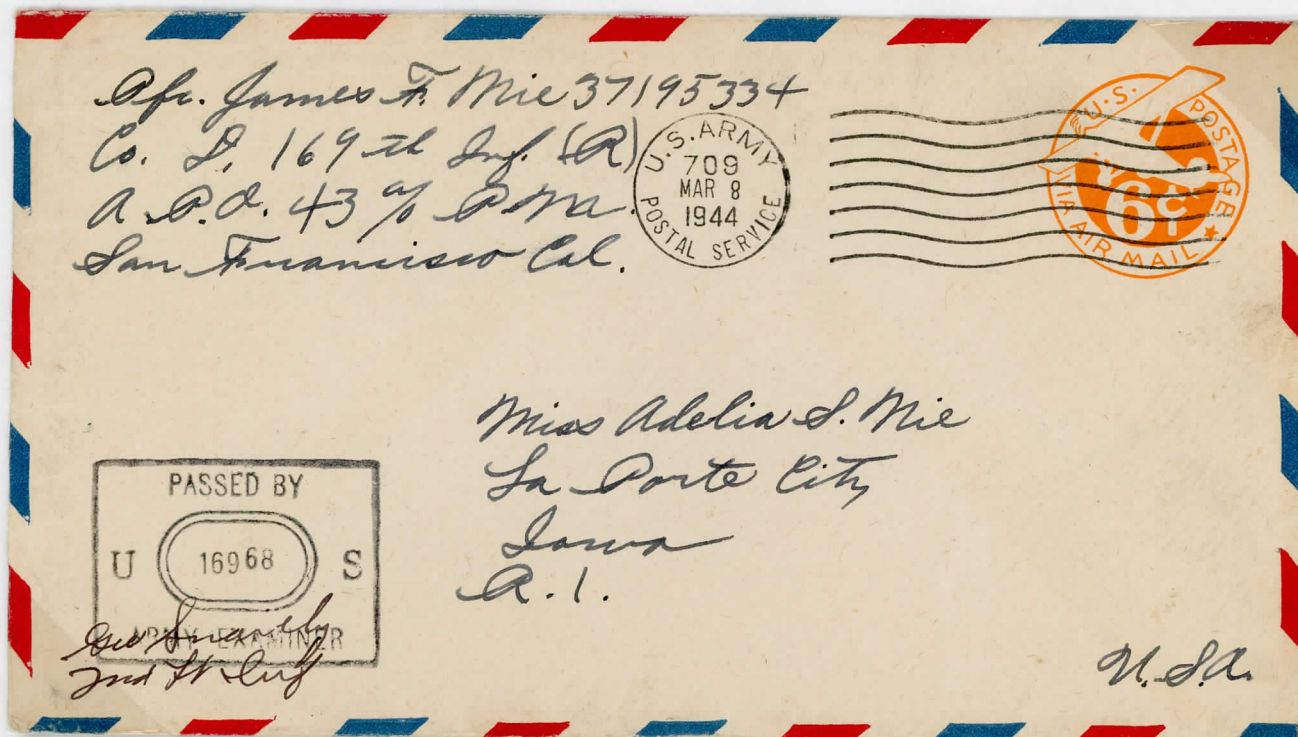 Pfc. James F. Mie 37195334
Co. D, 169th Inf. (R)
A.P.O. 43 c/o P.M.
San Francisco Cal.
U.S. ARMY
709
MAR 8
1944
POSTAL SERVICE
U.S. POSTAGE
6¢
VIA AIR MAIL
Miss Adelia S. Mie
La Porte City
Iowa
R. 1.
U.S.A.
PASSED BY
U 16968 S
ARMY EXAMINER
2nd Lt Inf